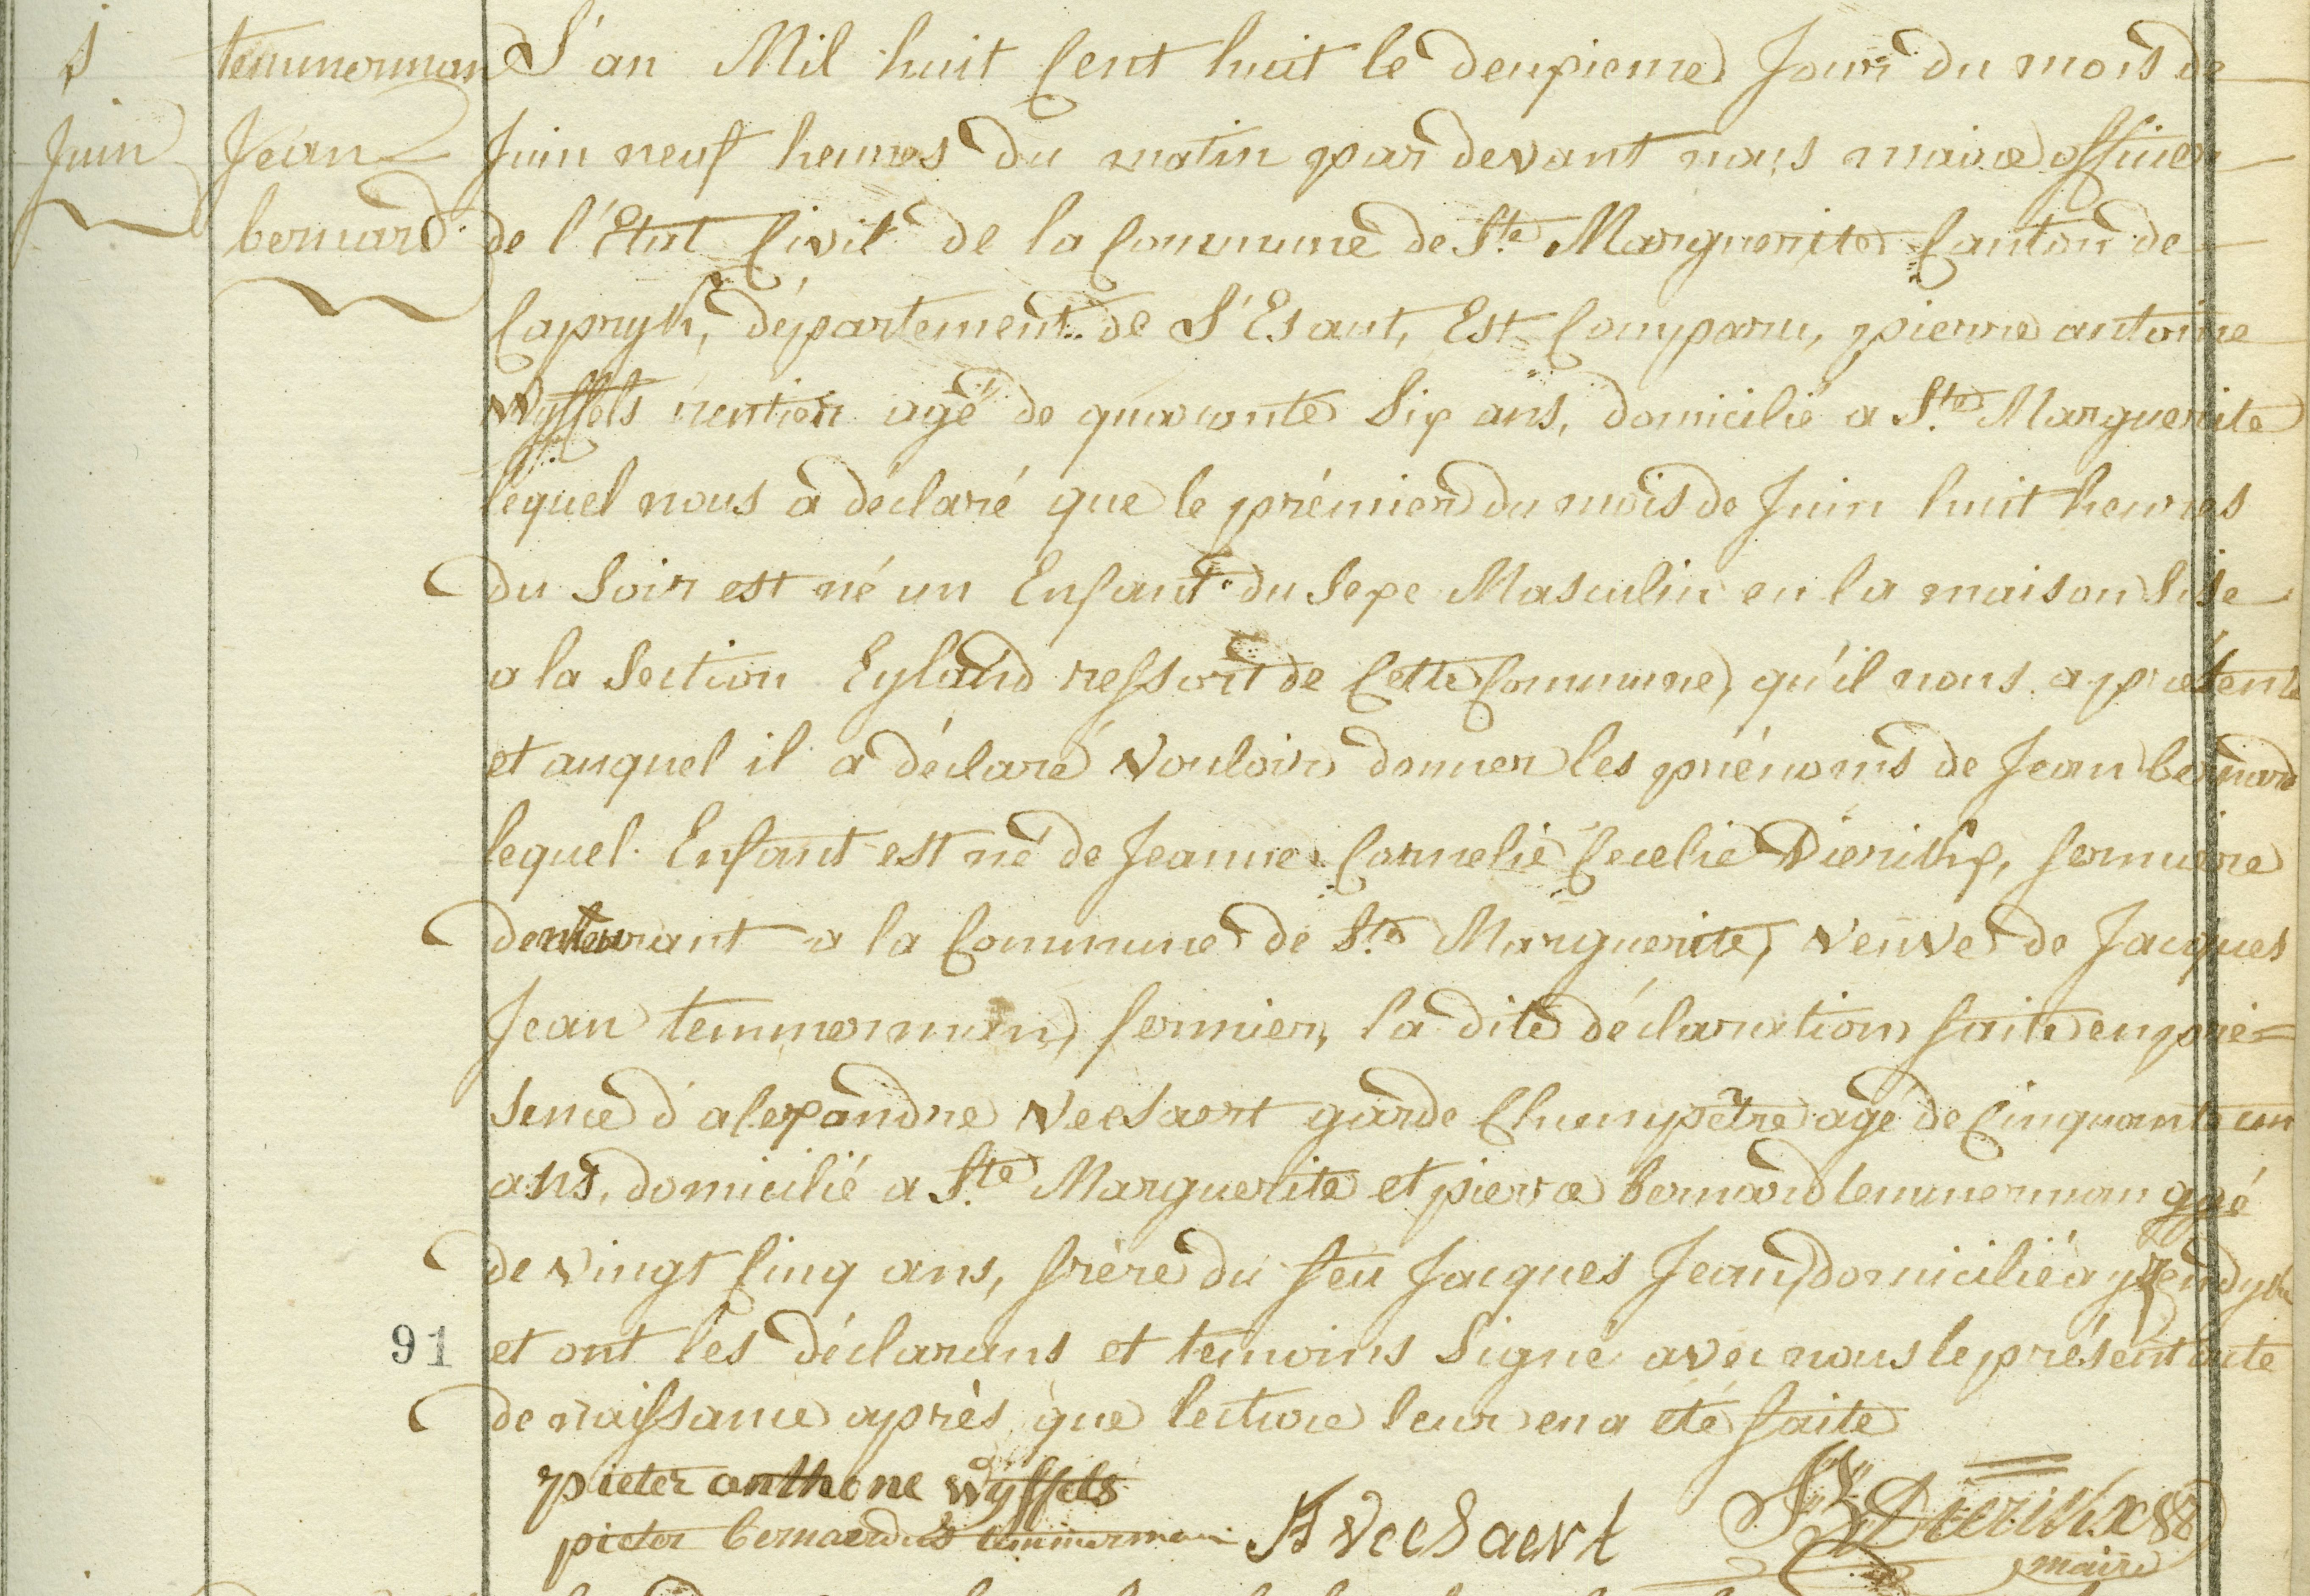 1
Juin
temmerman
Jean
bernard
L'an Mil huit Cent huit le deuxieme Jour du mois de
Juin neuf heures du matin par devant nous maire officier
de l'Etat Civil de la Commune de Ste Marguerite Canton de
Capryk, département de L'Escaut, Est Comparu, pierre antoine
Wyffels rentier agé de quaranté Six ans, domicilié a Ste Marguerite
lequel nous a déclaré que le prémier du mois de Juin huit heures
du Soir est né un Enfant du Sexe Masculin en la maison Sise
a la Section Eyland ressort de Cette Commune, qu'il nous a présenté
et auquel il a déclaré Vouloir donner les prénoms de Jean bernard
lequel Enfant est né de Jeanne Cornelie Cecelie Dierickx, fermiere
demeurant a la Commune de Ste Marguerite, veuve de Jacques
Jean temmerman, fermier, la dite déclaration faite en pré=
sence d'alexandre Veesaert garde Champêtre agé de Cinquante un
ans, domicilié a Ste Marguerite et pierre bernard temmerman agé
de vingt Cinq ans, frère du feu Jacques Jean, domicilié a yzendyke
91
et ont les déclarans et temoins Signé avec nous le présent acte
de naissance après que lecture leur en a été faite
pieter anthone Wyffels
pieter bernaerdus temmerman
A Veesaert
Dierickx
maire